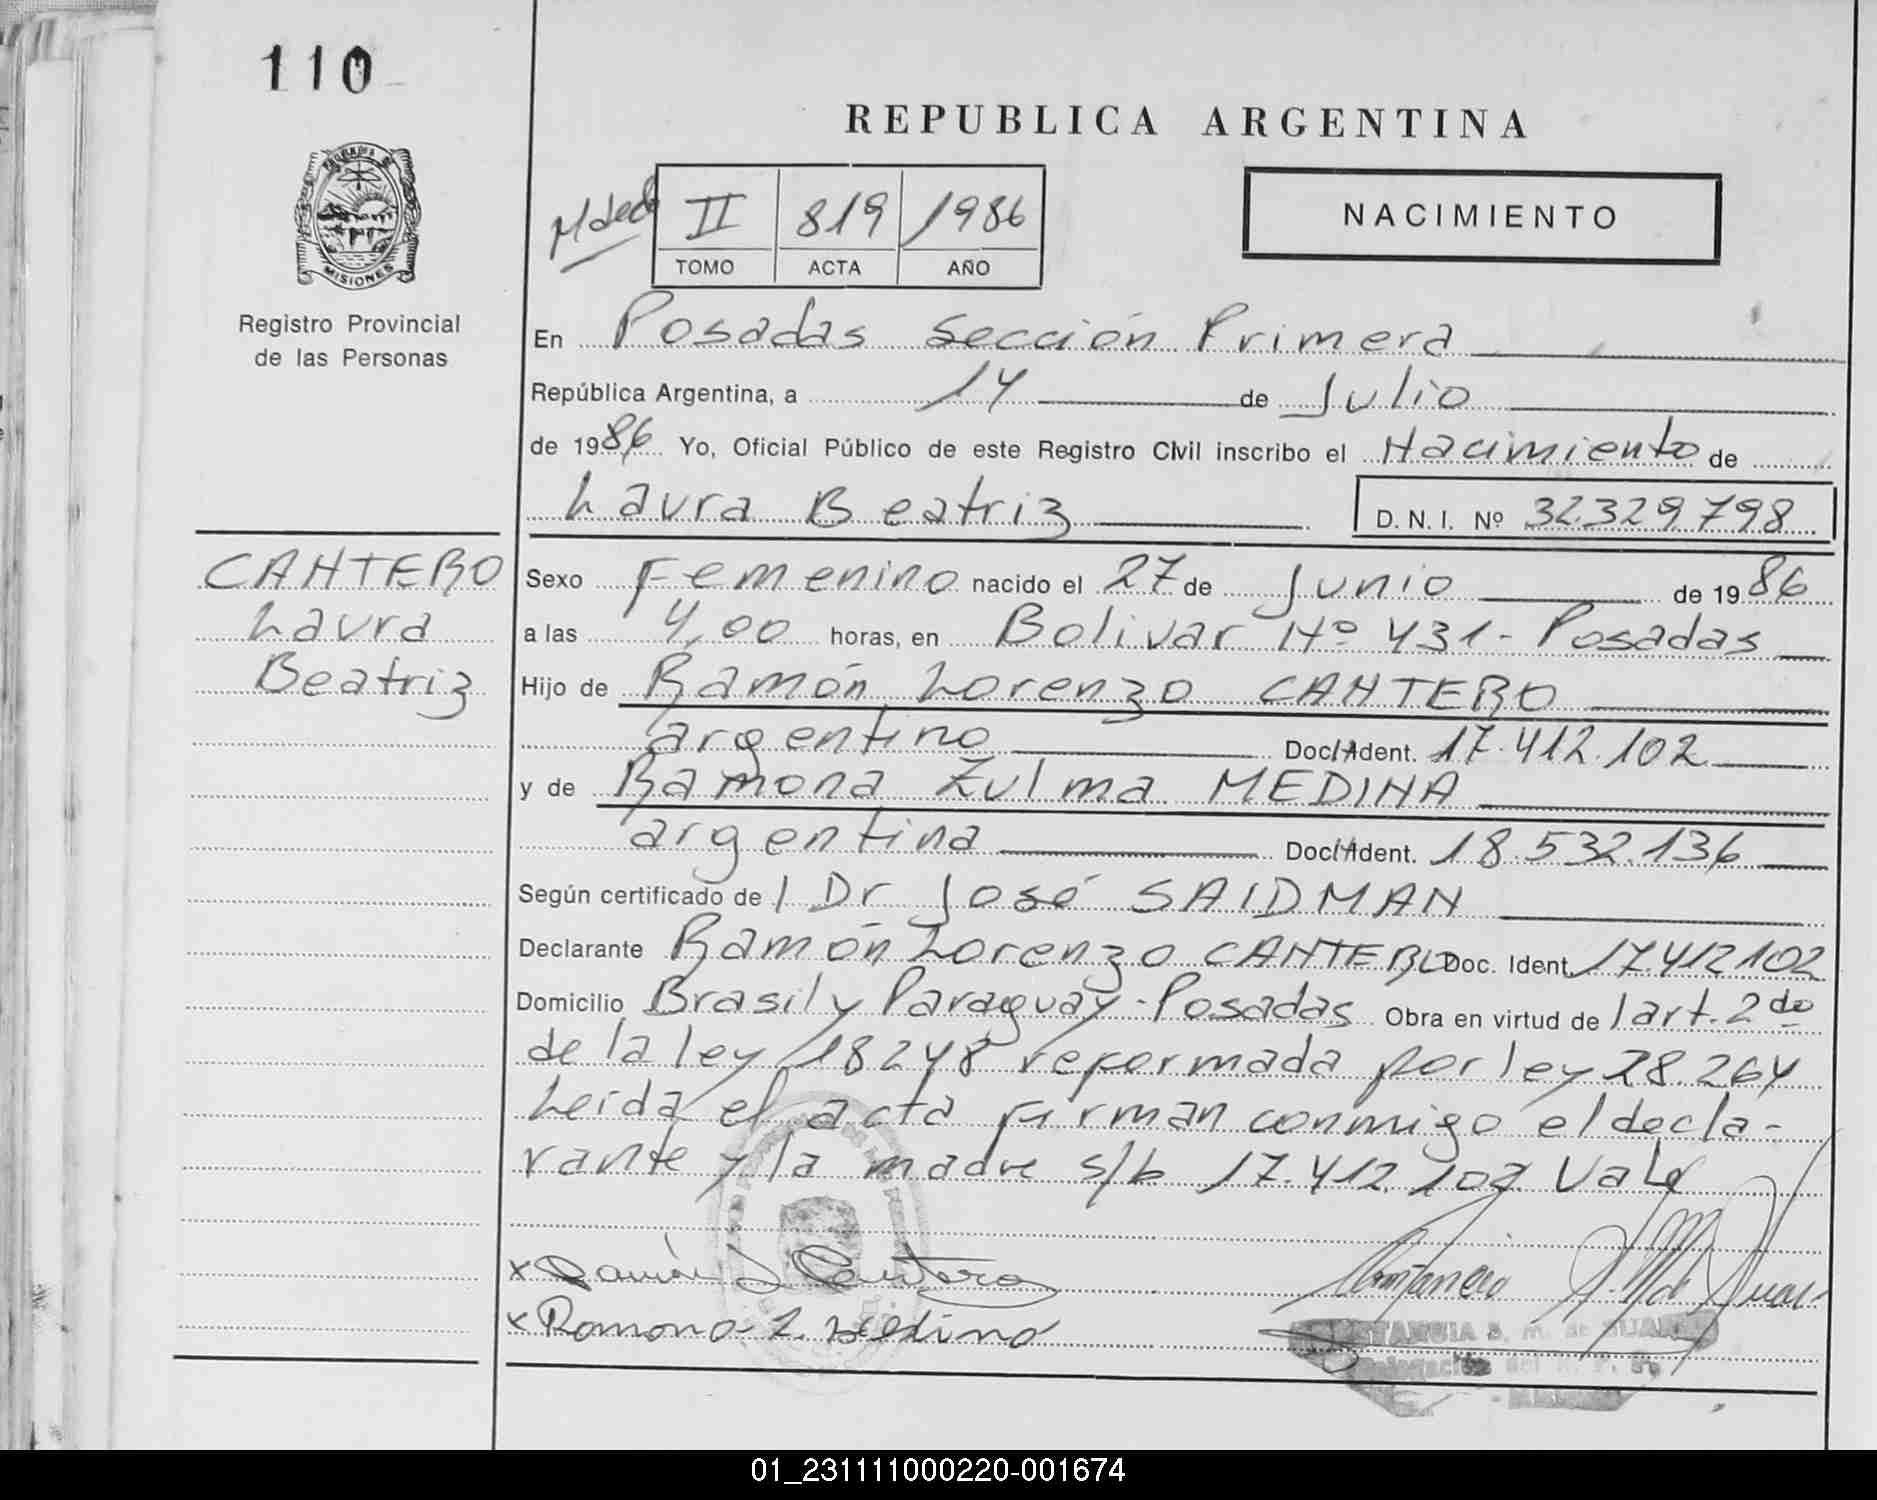 110
REPUBLICA ARGENTINA
MISIONES
Registro Provincial
de las Personas
II 819 1986
TOMO ACTA AÑO
NACIMIENTO
En Posadas Sección Primera
República Argentina, a 14 de Julio
de 1986 Yo, Oficial Público de este Registro Civil inscribo el Nacimiento de
Laura Beatriz D. N. I. Nº 32.329.798
CANTERO
Laura
Beatriz
Sexo Femenino nacido el 27 de Junio de 1986
a las 4,00 horas, en Bolivar Nº 431 - Posadas
Hijo de Ramón Lorenzo CANTERO
argentino Doc. Ident. 17.412.102
y de Ramona Zulma MEDINA
argentina Doc. Ident. 18.532.136
Según certificado de l Dr José SAIDMAN
Declarante Ramón Lorenzo CANTERO Doc. Ident. 17.412.102
Domicilio Brasil y Paraguay - Posadas Obra en virtud de l art. 2do
de la ley 18248 reformada por ley 18.264
Leída el acta firman conmigo el decla-
rante y la madre s/b 17.412.102 Vale
x Ramón L Cantero
x Ramona Z. Medina
01_231111000220-001674